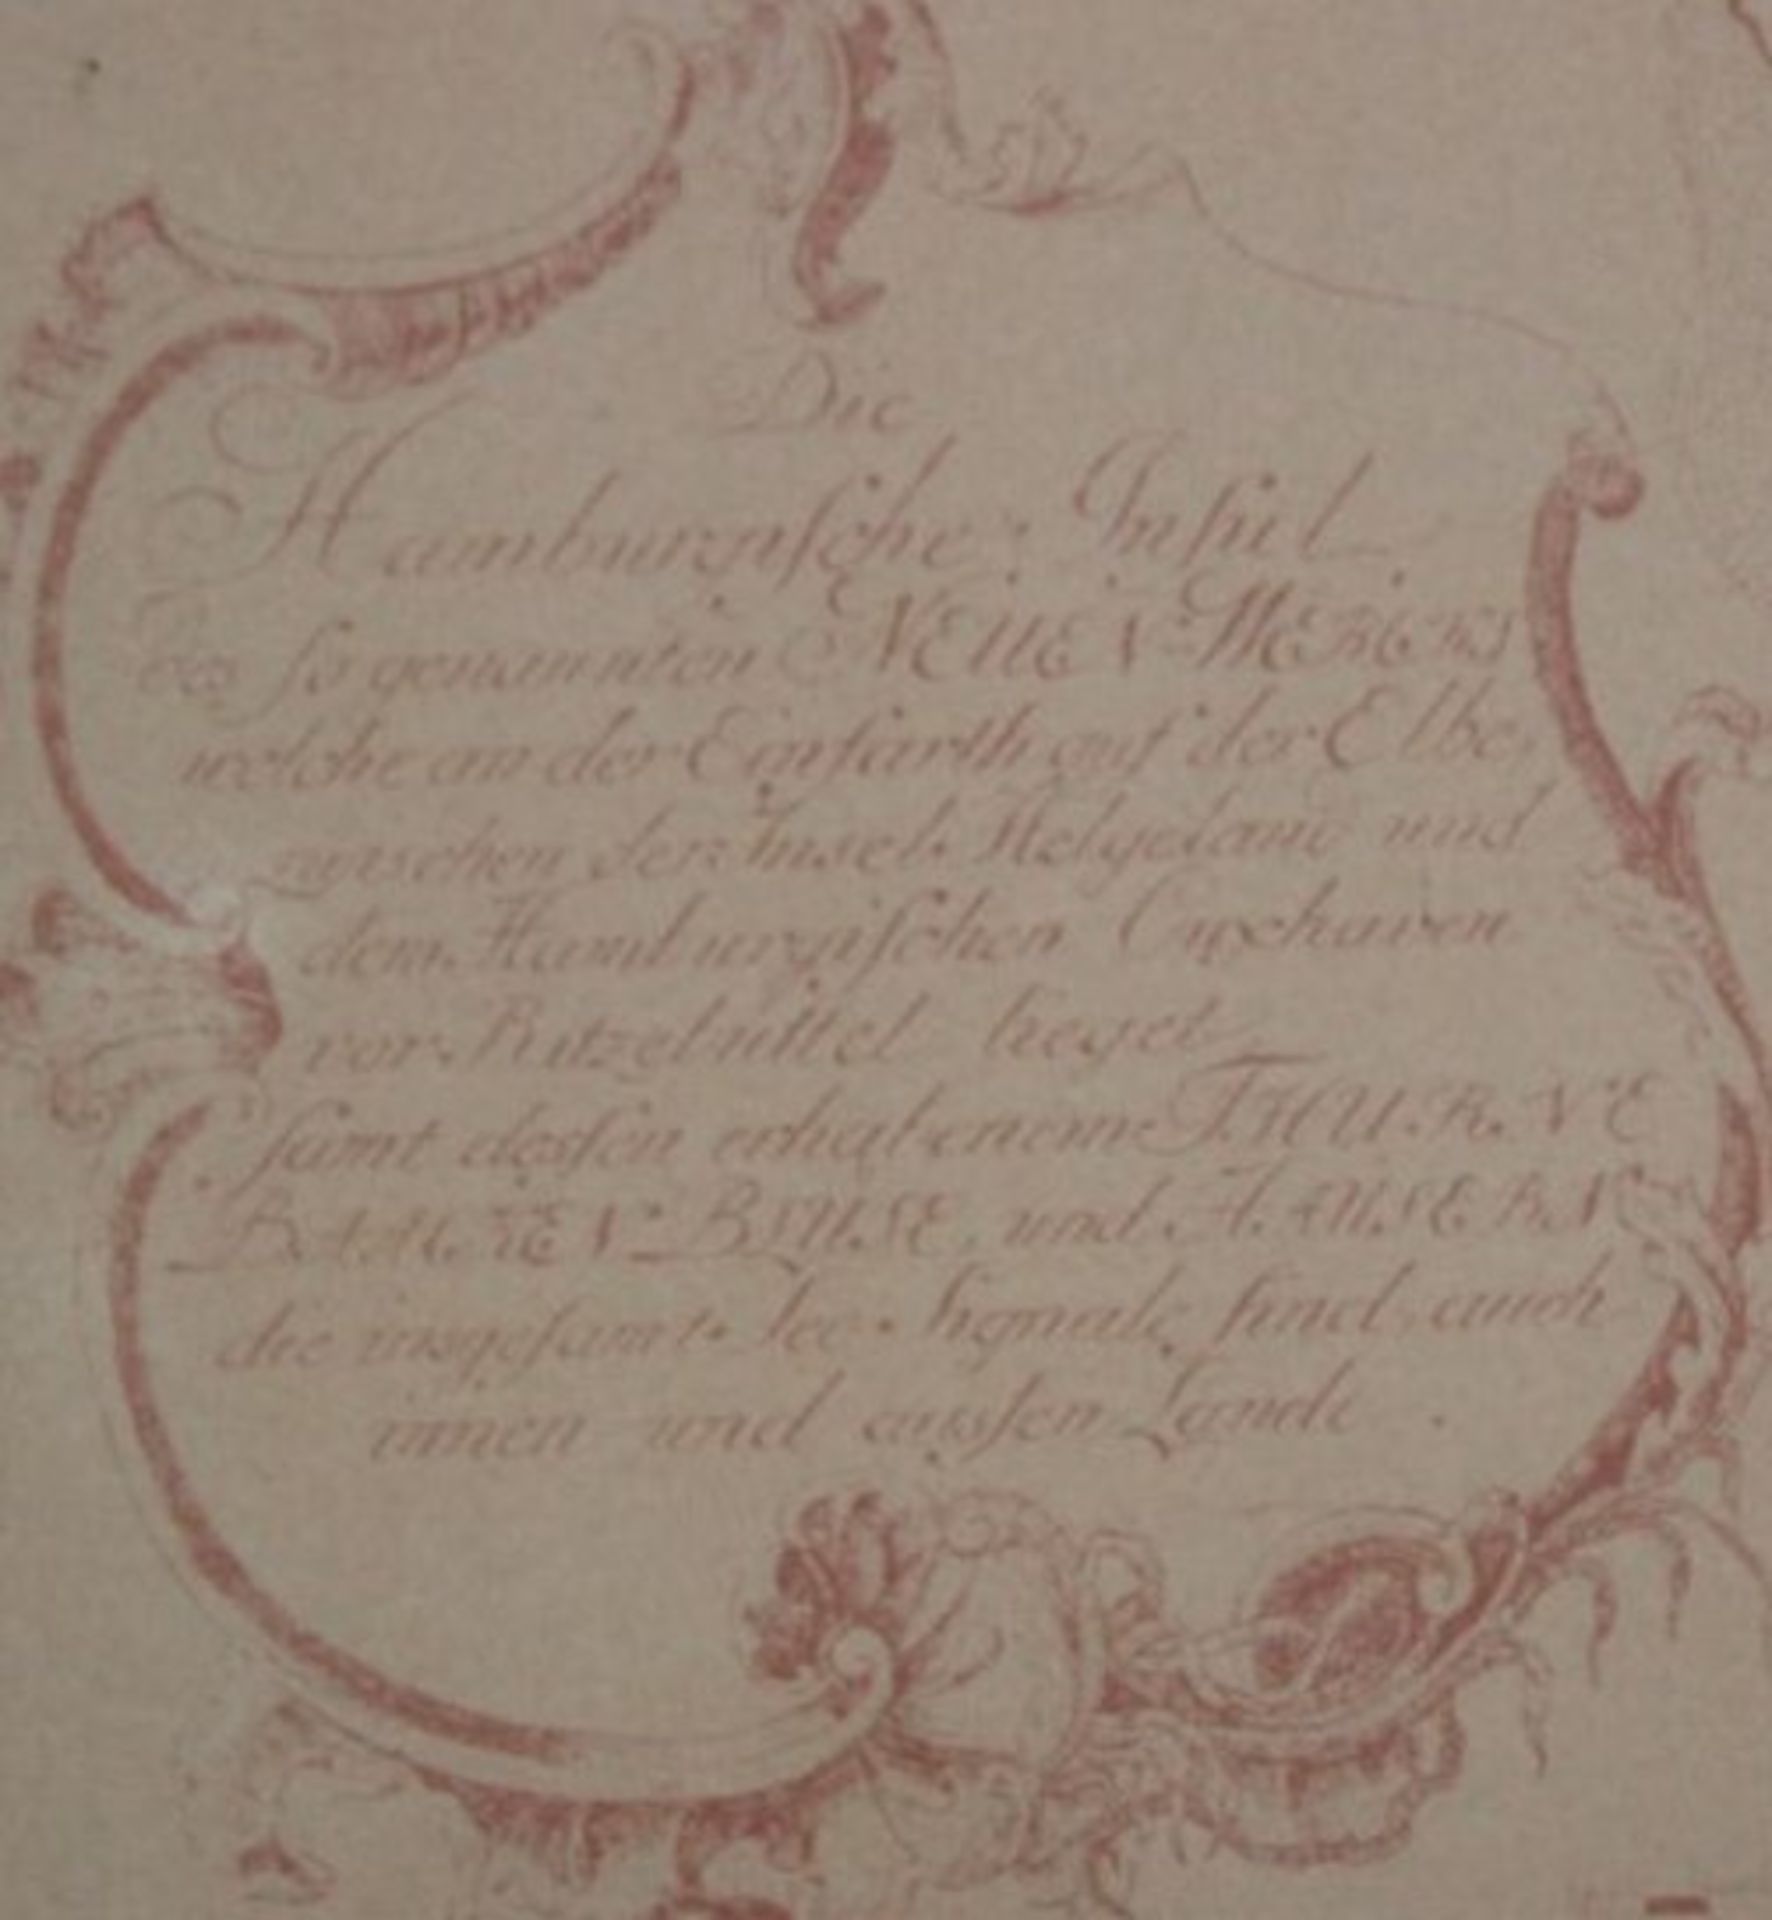 Die
Hamburgische Insel
des so genannten NEUEN WERCKS
welche an der Einfarth auf der Elbe,
zwischen der Insel Helgeland und
dem Hamburgischen Cuxhaven
vor Ritzebüttel lieget
samt dessen erhabenem THURNE
BAUREN und HÄUSERN
die insgesamt See Signale sind, auch
innen und aussen Lande.